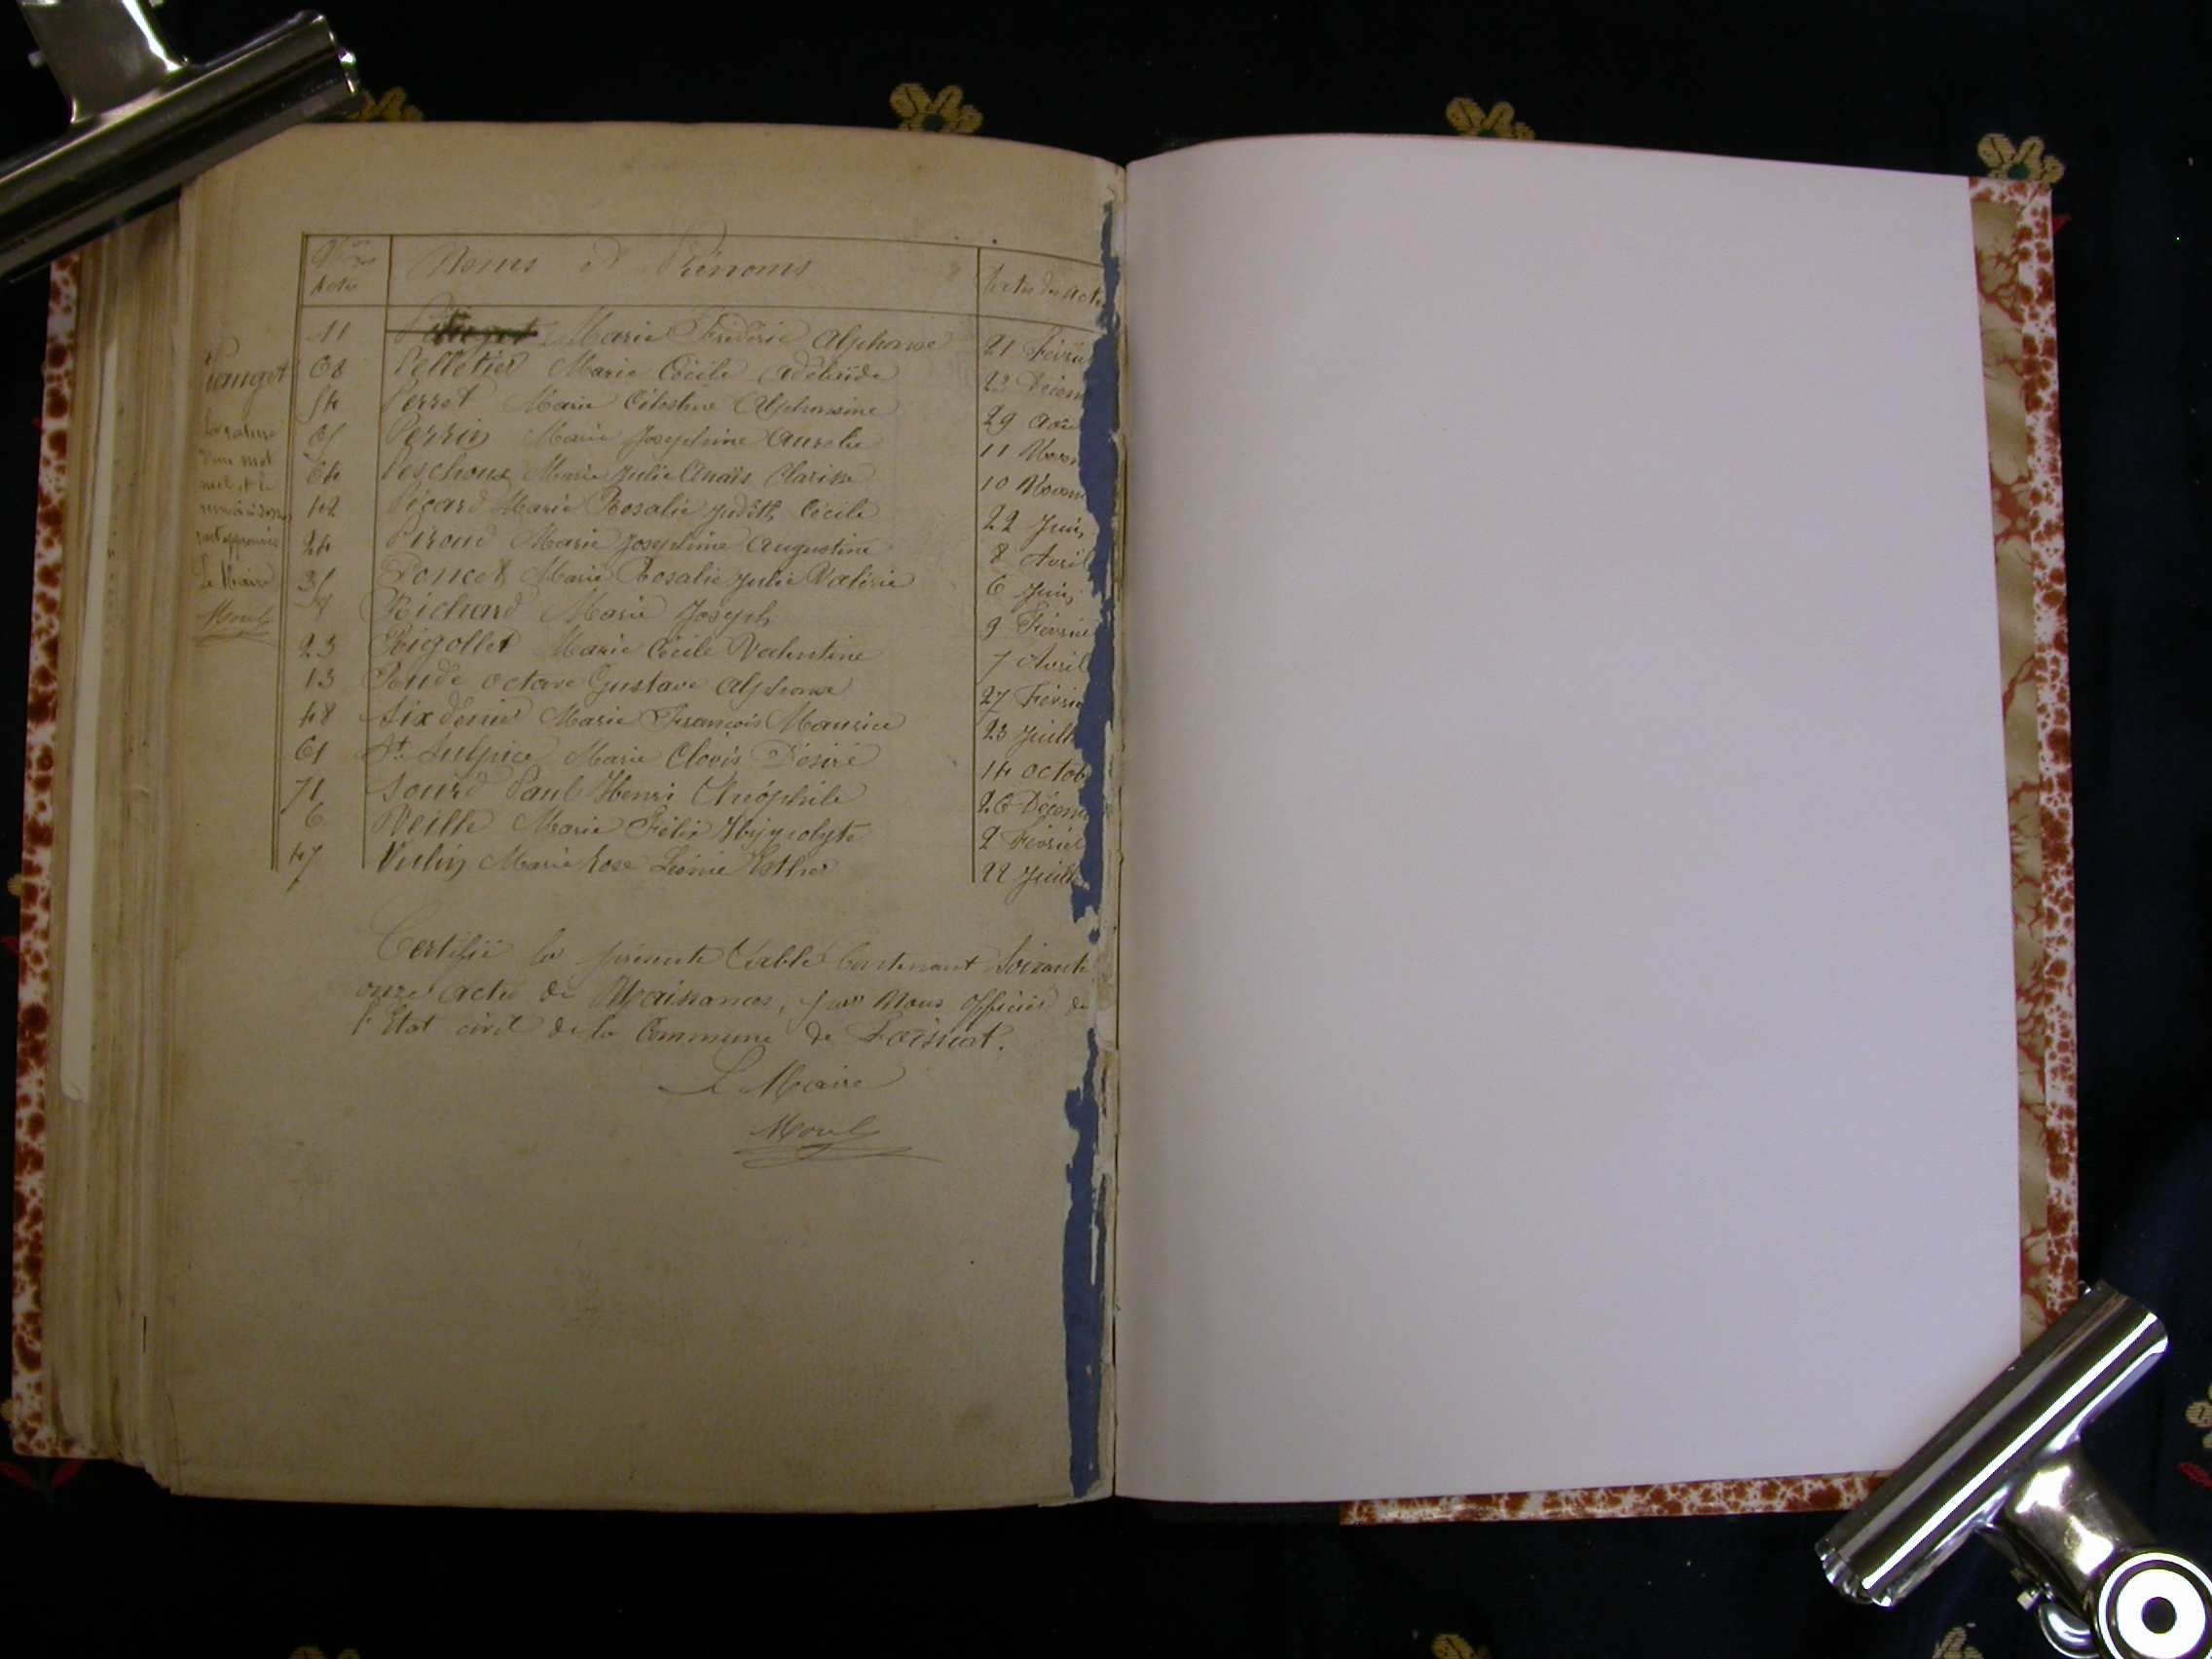 Nos des Actes Noms et Prénoms Dates des Acte
11 Marie Fréderic Alphonse 21 Févrie
68 Pelletier Marie Cécile Adélaïde 23 Décem
54 Perret Marie Célestine Alphonsine 29 Aoû
65 Perrin Marie Joséphine Aurelie 11 Novem
64 Peschoux Marie Julie Anaïs Clarisse 10 Novem
42 Picard Marie Rosalie Judith Cécile 22 Juin
24 Piroud Marie Joséphine Augustine 8 Avril
35 Poncet Marie Rosalie Julie Valérie 6 Juin
Richard Marie Joseph 9 Février
23 Rigollet Marie Cécile Valentine 7 Avril
13 Rude Octave Gustave Alphonse 27 Févrie
48 Sixdenier Marie François Maurice 23 Juill
61 St Sulpice Marie Clovis Désiré 14 Octob
71 Sourd Paul Henri Théophile 26 Décem
6 Veille Marie Félix Hyppolyte 2 Février
47 Vulin Marie Rose Léonie Esther 22 Juille
Pauget
La rature
d'un mot
nul et le
renvoi ci-dessus
sont approuvés
Le Maire
Morel
Certifié la présente Table Contenant Soixante
onze acte de Naissances, par Nous officier de
l'Etat civil de la Commune de Foissiat.
Le Maire
Morel